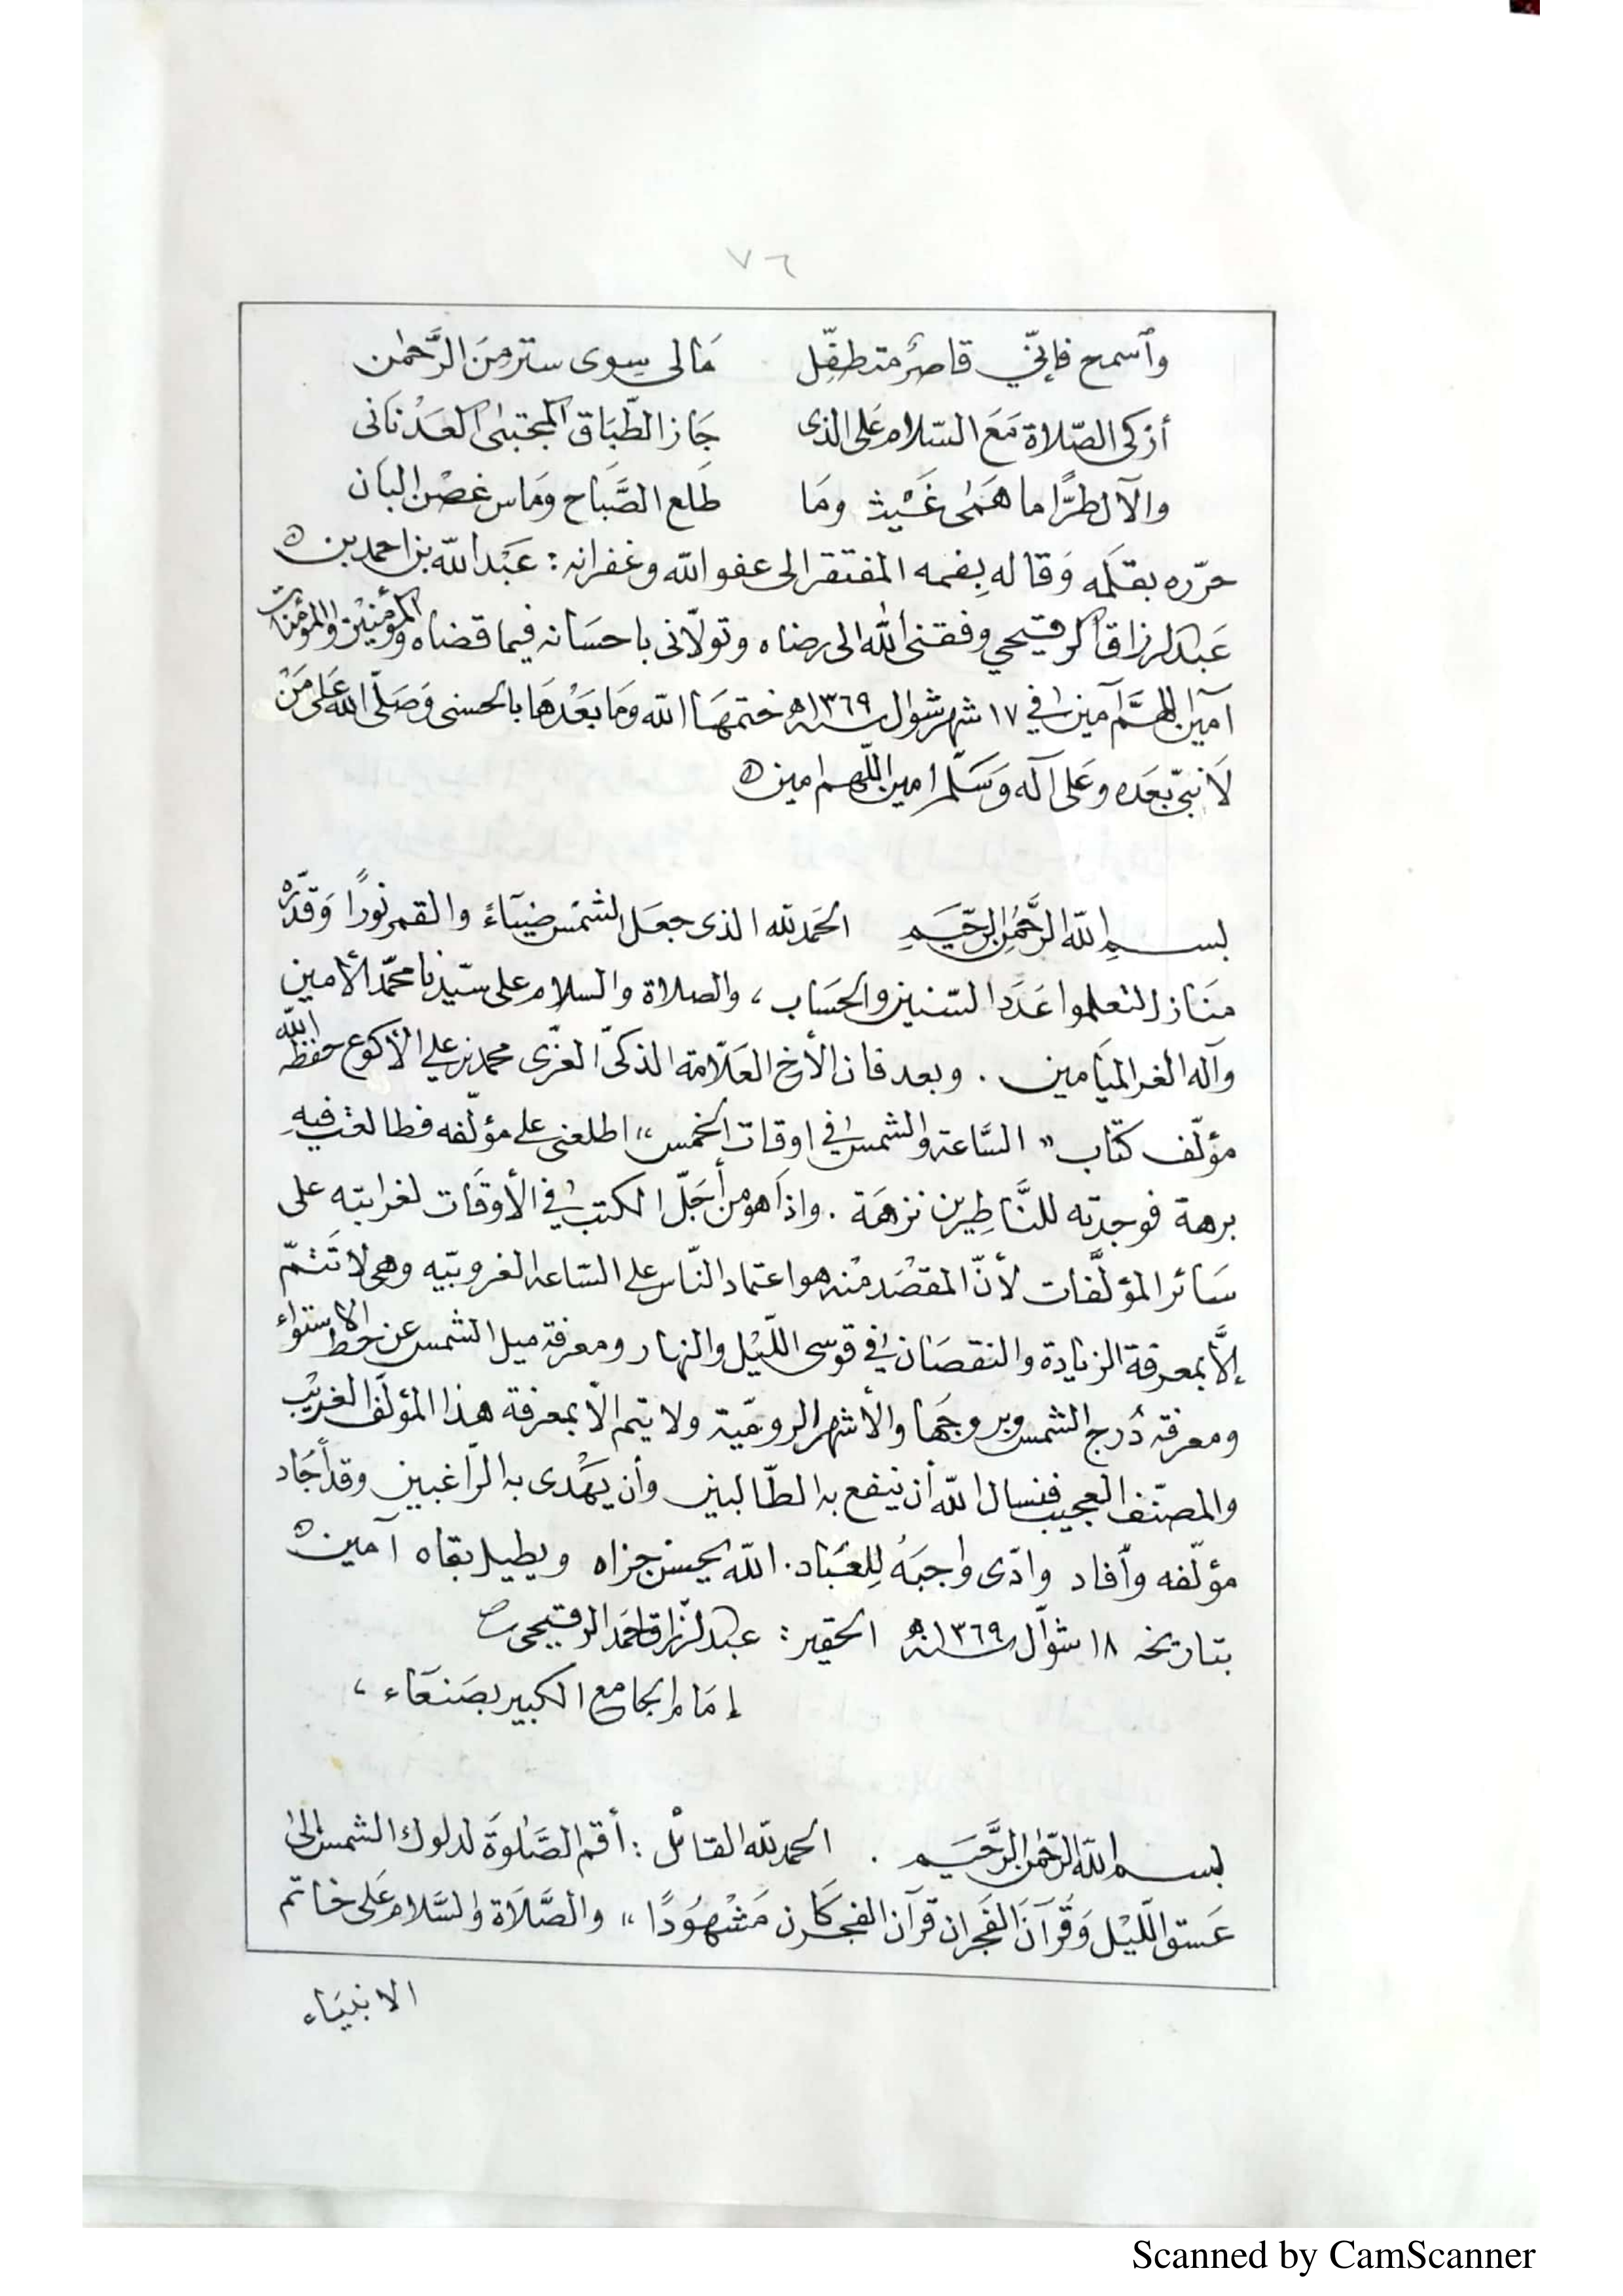 ٧٦
وٱسمح فإنّي قاصرٌ متطفّل مَالى سِوى ستر مِنَ الرَّحمٰن
أزكى الصّلاة مَعَ السّلام عَلى الذى جَاز الطّبَاق المجتبىٰ العَدْنَانى
والآل طرًّا ما هَمَىٰ غَيْث ومَا طَلع الصَّبَاح وَمَاس غصْن البَان
حرّره بقلَمه وَقاله بِفمه المفتقر الى عفو الله وغفرانه : عَبْد الله بن احمد بن
عَبد الرزاق الرقيحي وفقنى الله الى رضاه وتولّانى باحسَانه فيما قضاه والمؤمنيْن والمؤمنات
آمين اللهمَّ آمين في ١٧ شهر شوال سنة ١٣٦٩ھ ختمهَا الله وَمَا بَعْدهَا بالحسنى وَصَلّى الله عَلى مَنْ
لَا نبىّ بعَده وعَلى آله وَسَلّم امين اللّهم امين
بسمِ اللّه الرَّحمٰن الرّحَيم الحَمد لله الذى جعَل الشمْس ضيَآءً والقمر نُورًا وَقدَّرهُ
مَنَازل لتعلموا عَدَد السّنين والحَساب ، والصلاة والسلام على سَيّدنا محمّد الأمين
وآله الغر الميَامين . وبعد فان الأخ العَلّامة الذكىّ العزّى محمد بن علي الأكوع حفظه الله
مؤلّف كتَاب " السَّاعة والشمس في اوقات الخمس " اطلعنى على مؤلّفه فطالعْت فيهِ
برهة فوجدته للنَّاظِرين نزهَة . واذَا هو من أجَلّ الكتب في الأوقَات لغرابته على
سَائر المؤلَّفات لأنّ المقصْد منْه هو اعتماد النّاس على السّاعة الغروبيّه وهى لا تَتمّ
إلَّا بمعرفة الزيَادة والنقصَان في قوسى اللّيْل والنهار ومعرفة ميل الشمس عن خط الاستواء
ومعرفة دُرج الشمس وبروجهَا والأشهر الروميّة ولا يتم الّا بمعرفة هذا المؤلّف الغريْب
والمصنّف العجيب فنسال الله أن ينفع به الطّالبين وأن يهْدى به الرّاغبين وقد أجَاد
مؤلّفه وأفاد وادّى واجبَهُ لِلعبَاد . اللّه يحسن جزاه ويطيل بقاه آمين
بتاريخه ١٨ شوّال سنة ١٣٦٩ھ الحقير : عبد الرّزاق احمَد الرقيحى
إمَام الجامع الكبير بصَنعَاء ،
بسم اللّه الرّحمٰن الرَّحيَم . الحمد لله القائل : أقم الصَّلوٰةَ لدلوك الشمس إلىٰ
عَسق اللّيْل وَقُرآنَ الفَجر ان قرآن الفجر كَان مَشْهوُدًا " والصَّلَاة والسَّلام عَلى خاتم
الانبيَاء
Scanned by CamScanner